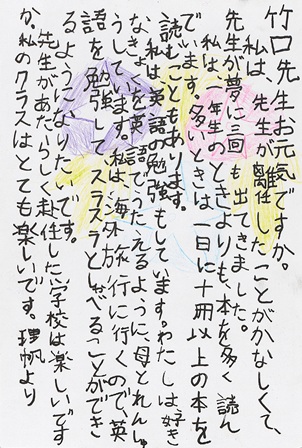 竹口先生お元気ですか。
私は、先生が離任したことがかなしくて、
先生が夢に三回も出てきました。
私は、一年生のときよりも、本を多く読ん
でいます。多いときは一日に十冊以上の本を
読むこともあります。
私は英語の勉強もしています。わたしは好き
なきょくを英語でうたえるように、母とれんしゅ
うしています。私は、海外旅行に行くので、英
語を勉強してスラスラとしゃべることができ
るようになりたいです。
先生があたらしく赴任した学校は楽しいです
か。私のクラスはとても楽しいです。理帆より